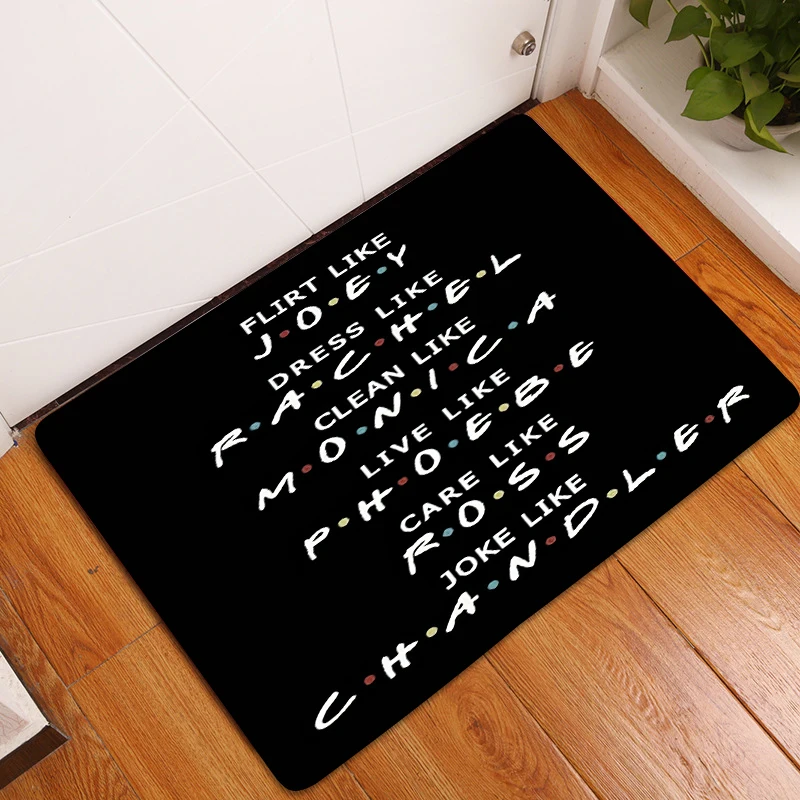 FLIRT LIKE
J•O•E•Y
DRESS LIKE
R•A•C•H•E•L
CLEAN LIKE
M•O•N•I•C•A
LIVE LIKE
P•H•O•E•B•E
CARE LIKE
R•O•S•S
JOKE LIKE
C•H•A•N•D•L•E•R